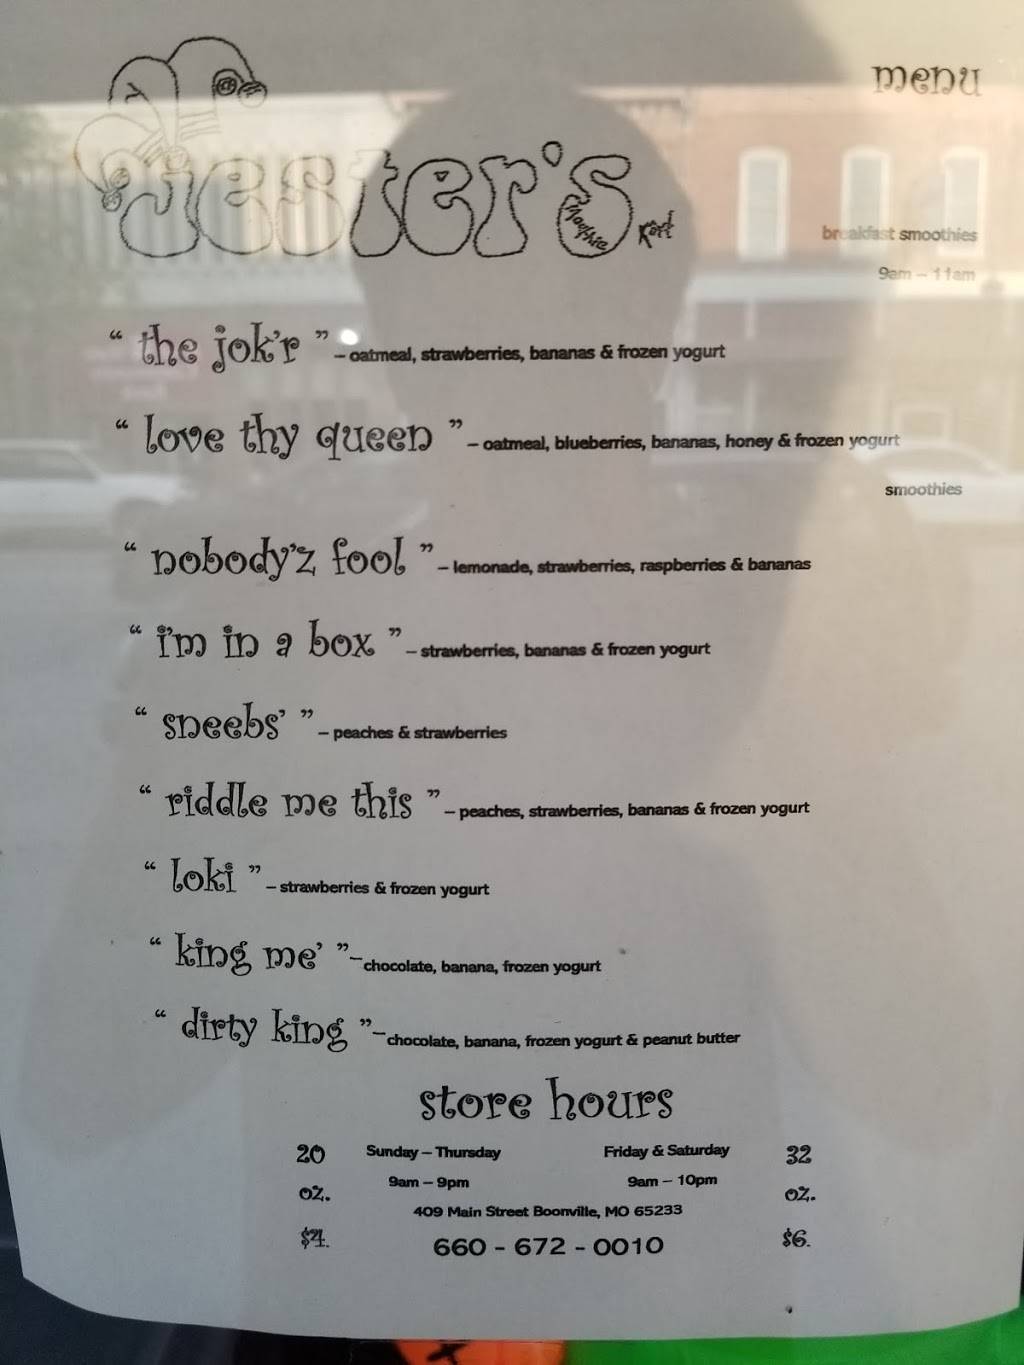 menu
Jester's
Smoothie Kart
breakfast smoothies
9am – 11am
“ the jok'r ” – oatmeal, strawberries, bananas & frozen yogurt
“ love thy queen ” – oatmeal, blueberries, bananas, honey & frozen yogurt
smoothies
“ nobody'z fool ” – lemonade, strawberries, raspberries & bananas
“ i'm in a box ” – strawberries, bananas & frozen yogurt
“ sneebs' ” – peaches & strawberries
“ riddle me this ” – peaches, strawberries, bananas & frozen yogurt
“ loki ” – strawberries & frozen yogurt
“ king me' ”– chocolate, banana, frozen yogurt
“ dirty king ”– chocolate, banana, frozen yogurt & peanut butter
store hours
20 Sunday – Thursday Friday & Saturday 32
oz. 9am – 9pm 9am – 10pm oz.
409 Main Street Boonville, MO 65233
$4. 660 - 672 - 0010 $6.